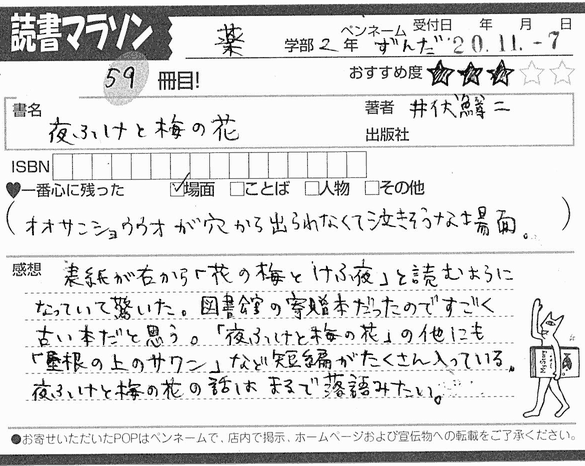 読書マラソン
薬 学部 2 年 ペンネーム ずんだ 受付日 年 月 日 20.11.-7
59 冊目! おすすめ度 ★★★☆☆
書名 夜ふけと梅の花
著者 井伏鱒二
出版社
ISBN
♥一番心に残った ☑場面 □ことば □人物 □その他
(オオサンショウウオが穴から出られなくて泣きそうな場面。)
感想
表紙が右から「花の梅とけふ夜」と読むように
なっていて驚いた。図書館の寄贈本だったのですごく
古い本だと思う。「夜ふけと梅の花」の他にも
「屋根の上のサワン」など短編がたくさん入っている。
夜ふけと梅の花の話はまるで落語みたい。
●お寄せいただいたPOPはペンネームで、店内で掲示、ホームページおよび宣伝物への転載をご了承ください。